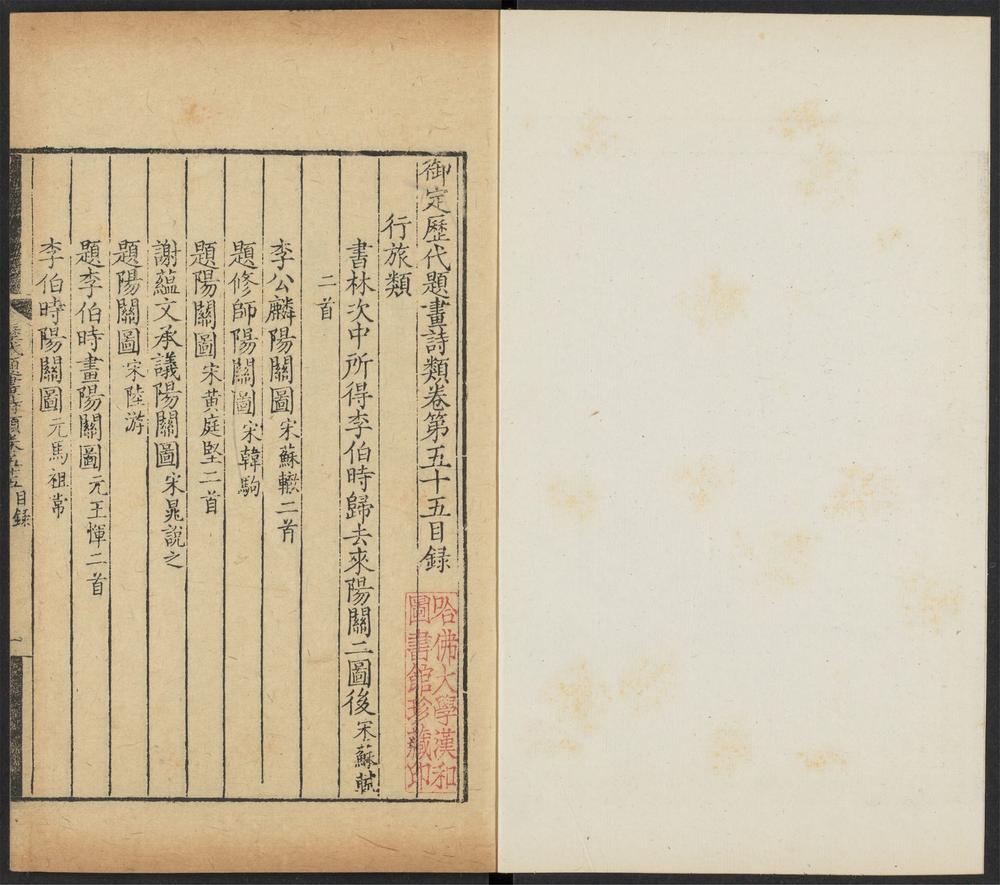 御定歷代題畫詩類卷第五十五目錄
哈佛大學漢和
圖書館珍藏印
行旅類
書林次中所得李伯時歸去來陽關二圖後 宋蘇軾
二首
李公麟陽關圖 宋蘇轍二首
題修師陽關圖 宋韓駒
題陽關圖 宋黃庭堅二首
謝蘊文承議陽關圖 宋晁說之
題陽關圖 宋陸游
題李伯時畫陽關圖 元王惲二首
李伯時陽關圖 元馬祖常
目錄
一